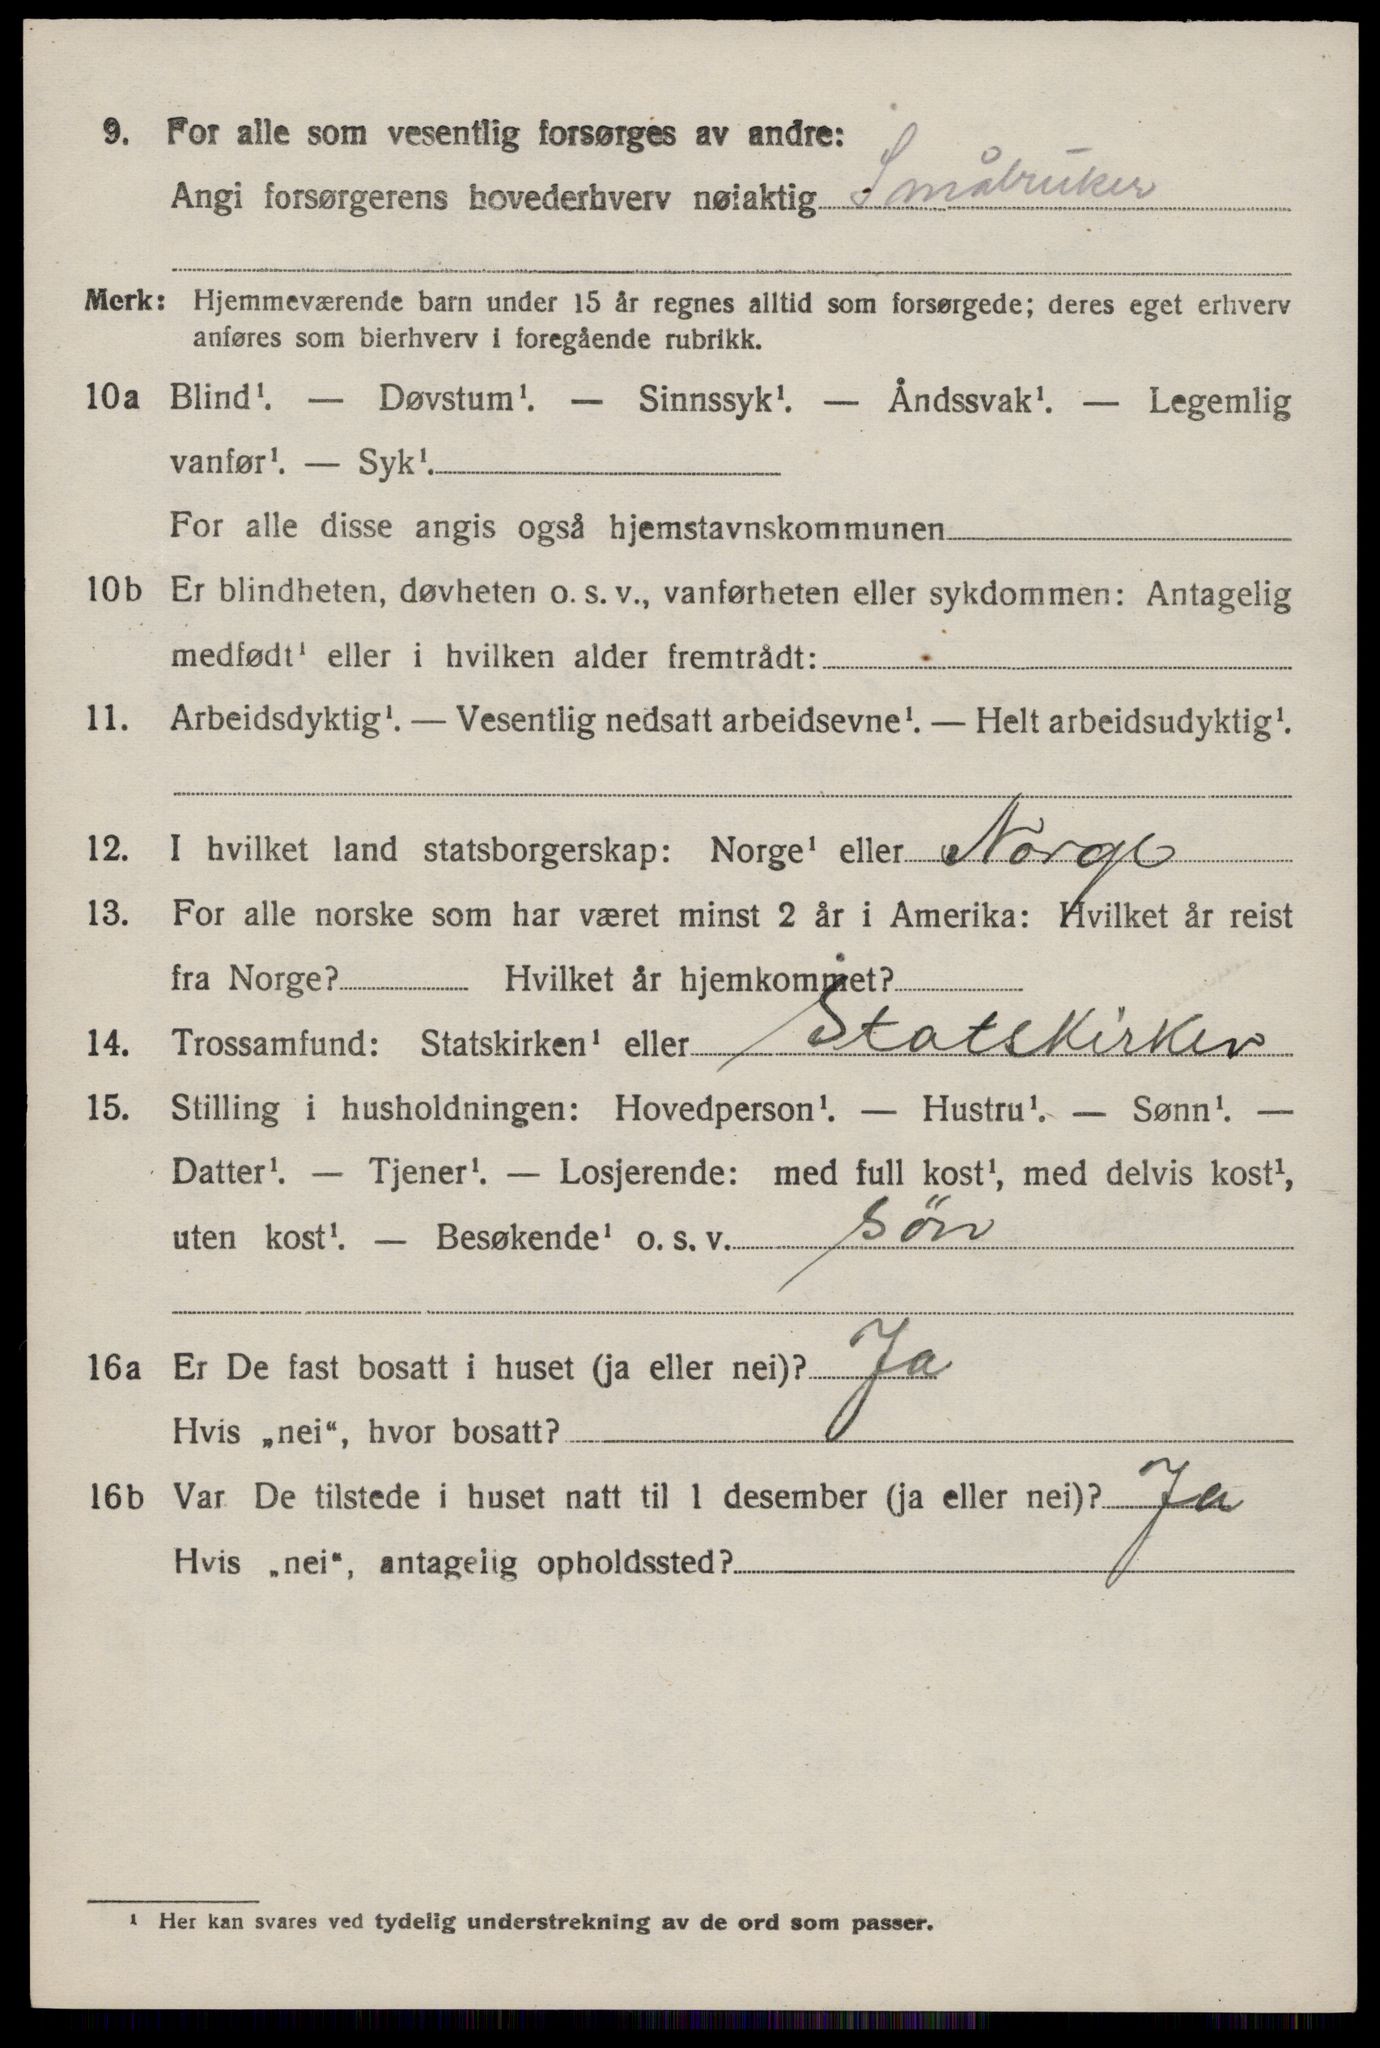 9. For alle som vesentlig forsørges av andre:
Angi forsørgerens hovederhverv nøiaktig Småbruker
Merk: Hjemmeværende barn under 15 år regnes alltid som forsørgede; deres eget erhverv
anføres som bierhverv i foregående rubrikk.
10a Blind¹. — Døvstum¹. — Sinnssyk¹. — Åndssvak¹. — Legemlig
vanfør¹. — Syk¹.
For alle disse angis også hjemstavnskommunen
10b Er blindheten, døvheten o. s. v., vanførheten eller sykdommen: Antagelig
medfødt¹ eller i hvilken alder fremtrådt:
11. Arbeidsdyktig¹. — Vesentlig nedsatt arbeidsevne¹. — Helt arbeidsudyktig¹.
12. I hvilket land statsborgerskap: Norge¹ eller Norge
13. For alle norske som har været minst 2 år i Amerika: Hvilket år reist
fra Norge? Hvilket år hjemkommet?
14. Trossamfund: Statskirken¹ eller Statskirken
15. Stilling i husholdningen: Hovedperson¹. — Hustru¹. — Sønn¹. —
Datter¹. — Tjener¹. — Losjerende: med full kost¹, med delvis kost¹,
uten kost¹. — Besøkende¹ o. s. v. sön
16a Er De fast bosatt i huset (ja eller nei)? Ja
Hvis „nei“, hvor bosatt?
16b Var De tilstede i huset natt til 1 desember (ja eller nei)? Ja
Hvis „nei“, antagelig opholdssted?
¹ Her kan svares ved tydelig understrekning av de ord som passer.